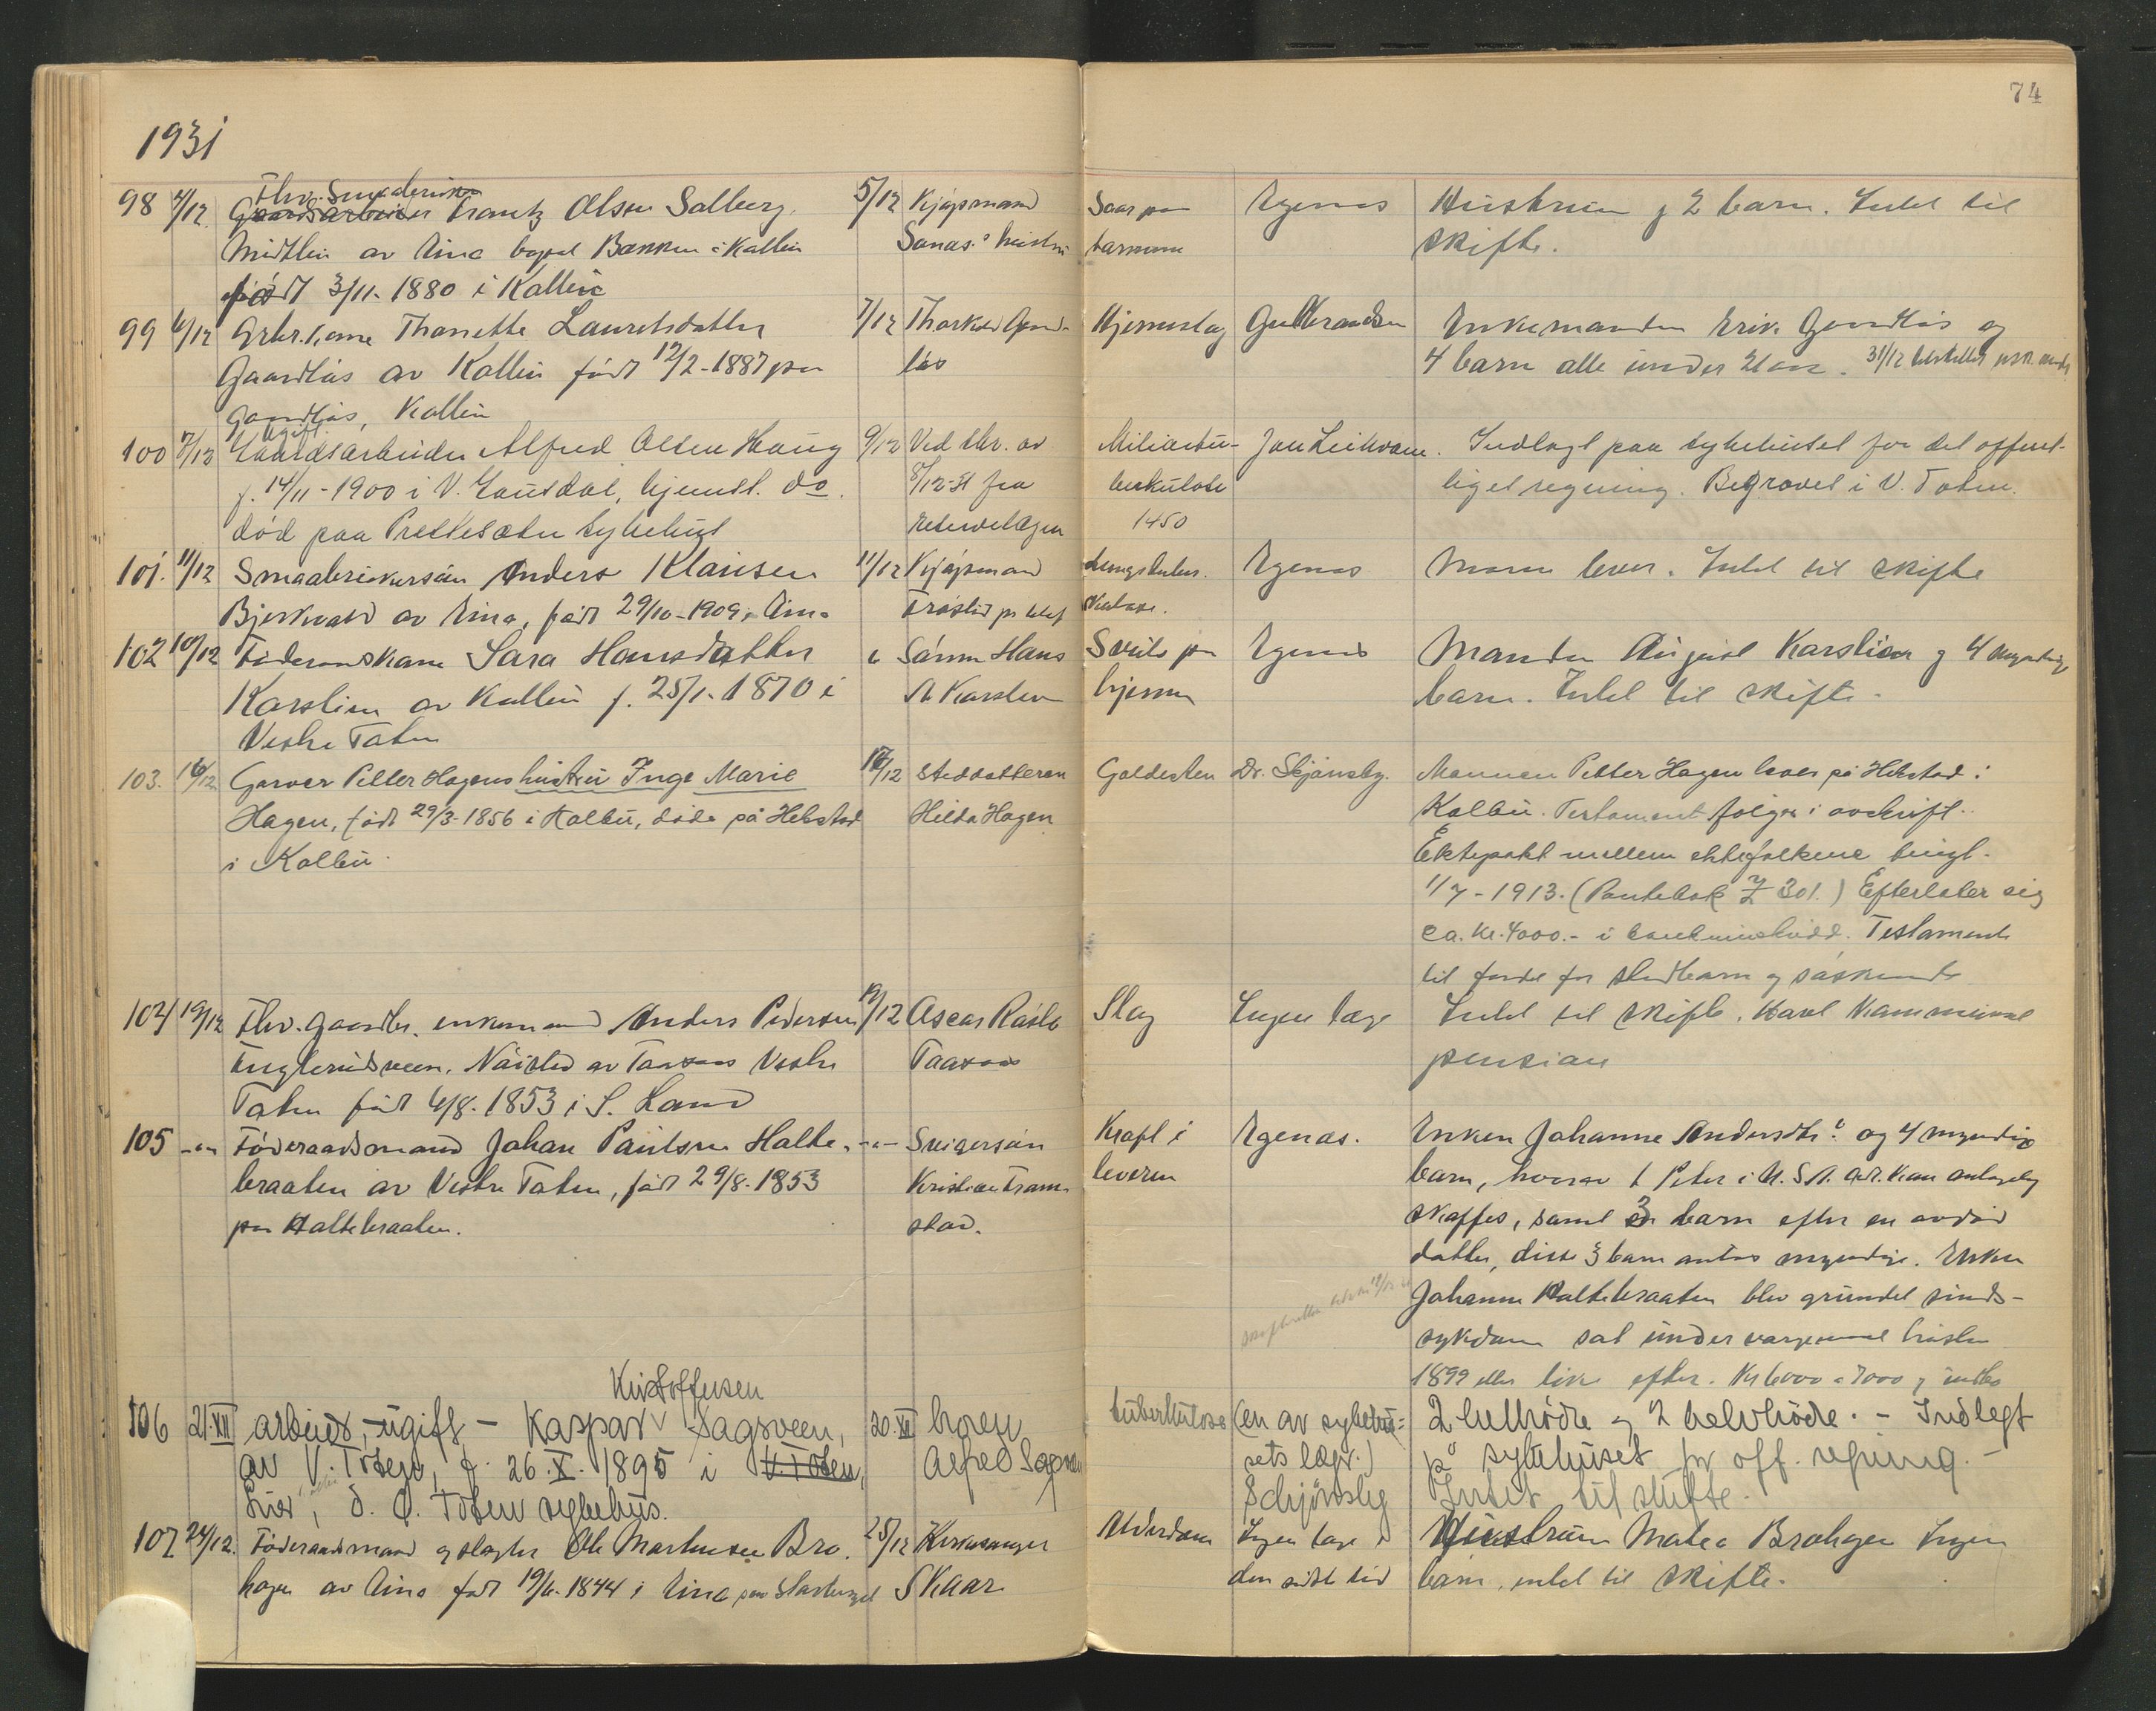 1931
74
98 4/12. Fhv. Smaabruker
Gaardsarbeider Frantz Olsen Solberg
Midtlien av Eina bopæl Bakken i Kolbu
født 3/11. 1880 i Kolbu
5/12 Kjøpmand
Sonas
Saar paa
tarmene
Egenæs
Hustruen og 2 barn. Intet til
skifte.
99 6/12 Grbr.kone Thonette Lauritsdatter
Gaardlös av Kolbu født 12/2-1887 paa
Gaardlös, Kolbu
7/12 Thorkild Gaard-
lös
Hjerneslag
Gulbrandsen
Enkemanden Erik Gaardlös og
4 barn alle under 21 aar. 31/12
100 7/12 Ugift
Gaardsarbeider Alfred Olsen Haug
f. 14/11-1900 i V. Gausdal, hjemst. do.
död paa Prestesæter sykehus
9/12 Ved skr. av
8/12-31 fra
reservelægen
Miliærtu-
berkulose
1450
Jon Leikvam.
Indlagt paa sykehuset for det offent-
liges regning. Begravet i V. Toten.
101. 11/12 Smaabrukersön Anders Klausen
Bjerkvold av Eina, født 29/10-1909 i Eina
11/12 Kjøpmand
Fröslid pr telef
Lungetuber-
kulose.
Egenæs
Moren lever. Intet til skifte
102 10/12 Föderaadskone Sara Hansdatter
Karslien av Kolbu f. 25/1. 1870 i
Vestre Toten
Sönn Hans
A Karslien
Svulst paa
hjernen
Egenæs
Manden August Karslien og 4 myndige
barn. Intet til skifte.
103. 16/12 Garver Petter Hagens hustru Inge Marie
Hagen, født 29/3-1856 i Kolbu, döde på Helstad
i Kolbu.
16/12 Steddatteren
Hilda Hagen
Galdesten
Dr. Skjönsby.
Mannen Petter Hagen lever på Helstad i
Kolbu. Testament følger i avskrift.
Ektepakt mellem ektefolkene tingl.
1/7-1913. (Pantebok Z 301.) Efterlater sig
ca. kr. 4000.- i bankinnskudd. Testament
til fordel for stedbarn og söskende
104 19/12 Fhv. gaardbr. enkemand Anders Pedersen
Engelundsveen. Nöisted av Taasaas Vestre
Toten født 4/8. 1853 i S. Land
19/12 Oscar Rösle
Taasaas
Slag
Ingen læge
Intet til skifte. Havt kommunal
pension
105 -"- Föderaadsmand Johan Paulsen Holte-
braaten av Vestre Toten, født 29/8. 1853
paa Holtebraaten.
-"- Svigersön
Kristian Fram-
stad.
Kræft i
leveren
Egenæs.
Enken Johanne Andersdtr. og 4 myndige
barn, hvorav 1 Peter i U.S.A. adr. kan antagelig
skaffes, samt 3 barn efter en avdöd
datter, disse 3 barn antas myndige. Enken
Johanne Holtebraaten blev grundet sinds-
sykdom sat under vergemaal hösten
1899 eller like efter. Kr 6000 a 7000 i indbo
106 21.XII Kristoffersen
arbeider, - ugift - Kaspar Sagsveen,
av V. Toten, f. 26.X.1895 i V. Toten,
d. Ö. Toten sykehus.
20.XII broren
Alfred Sagsveen
tuberkulose
(en av sykehu-
sets læger.)
Schjønsby
2 helbrödre og 2 halvbrödre. - Indlagt
på sykehuset for off. regning. -
Intet til skifte.
107 24/12. Föderaadsmand og slagter Ole Martinsen Bro-
hagen av Eina født 19/6-1844 i Eina
25/12 Kirkesanger
Skaar
Alderdom
Ingen læge i
den siste tid
Hustruen Matea Brohagen Ingen
barn, intet til skifte.